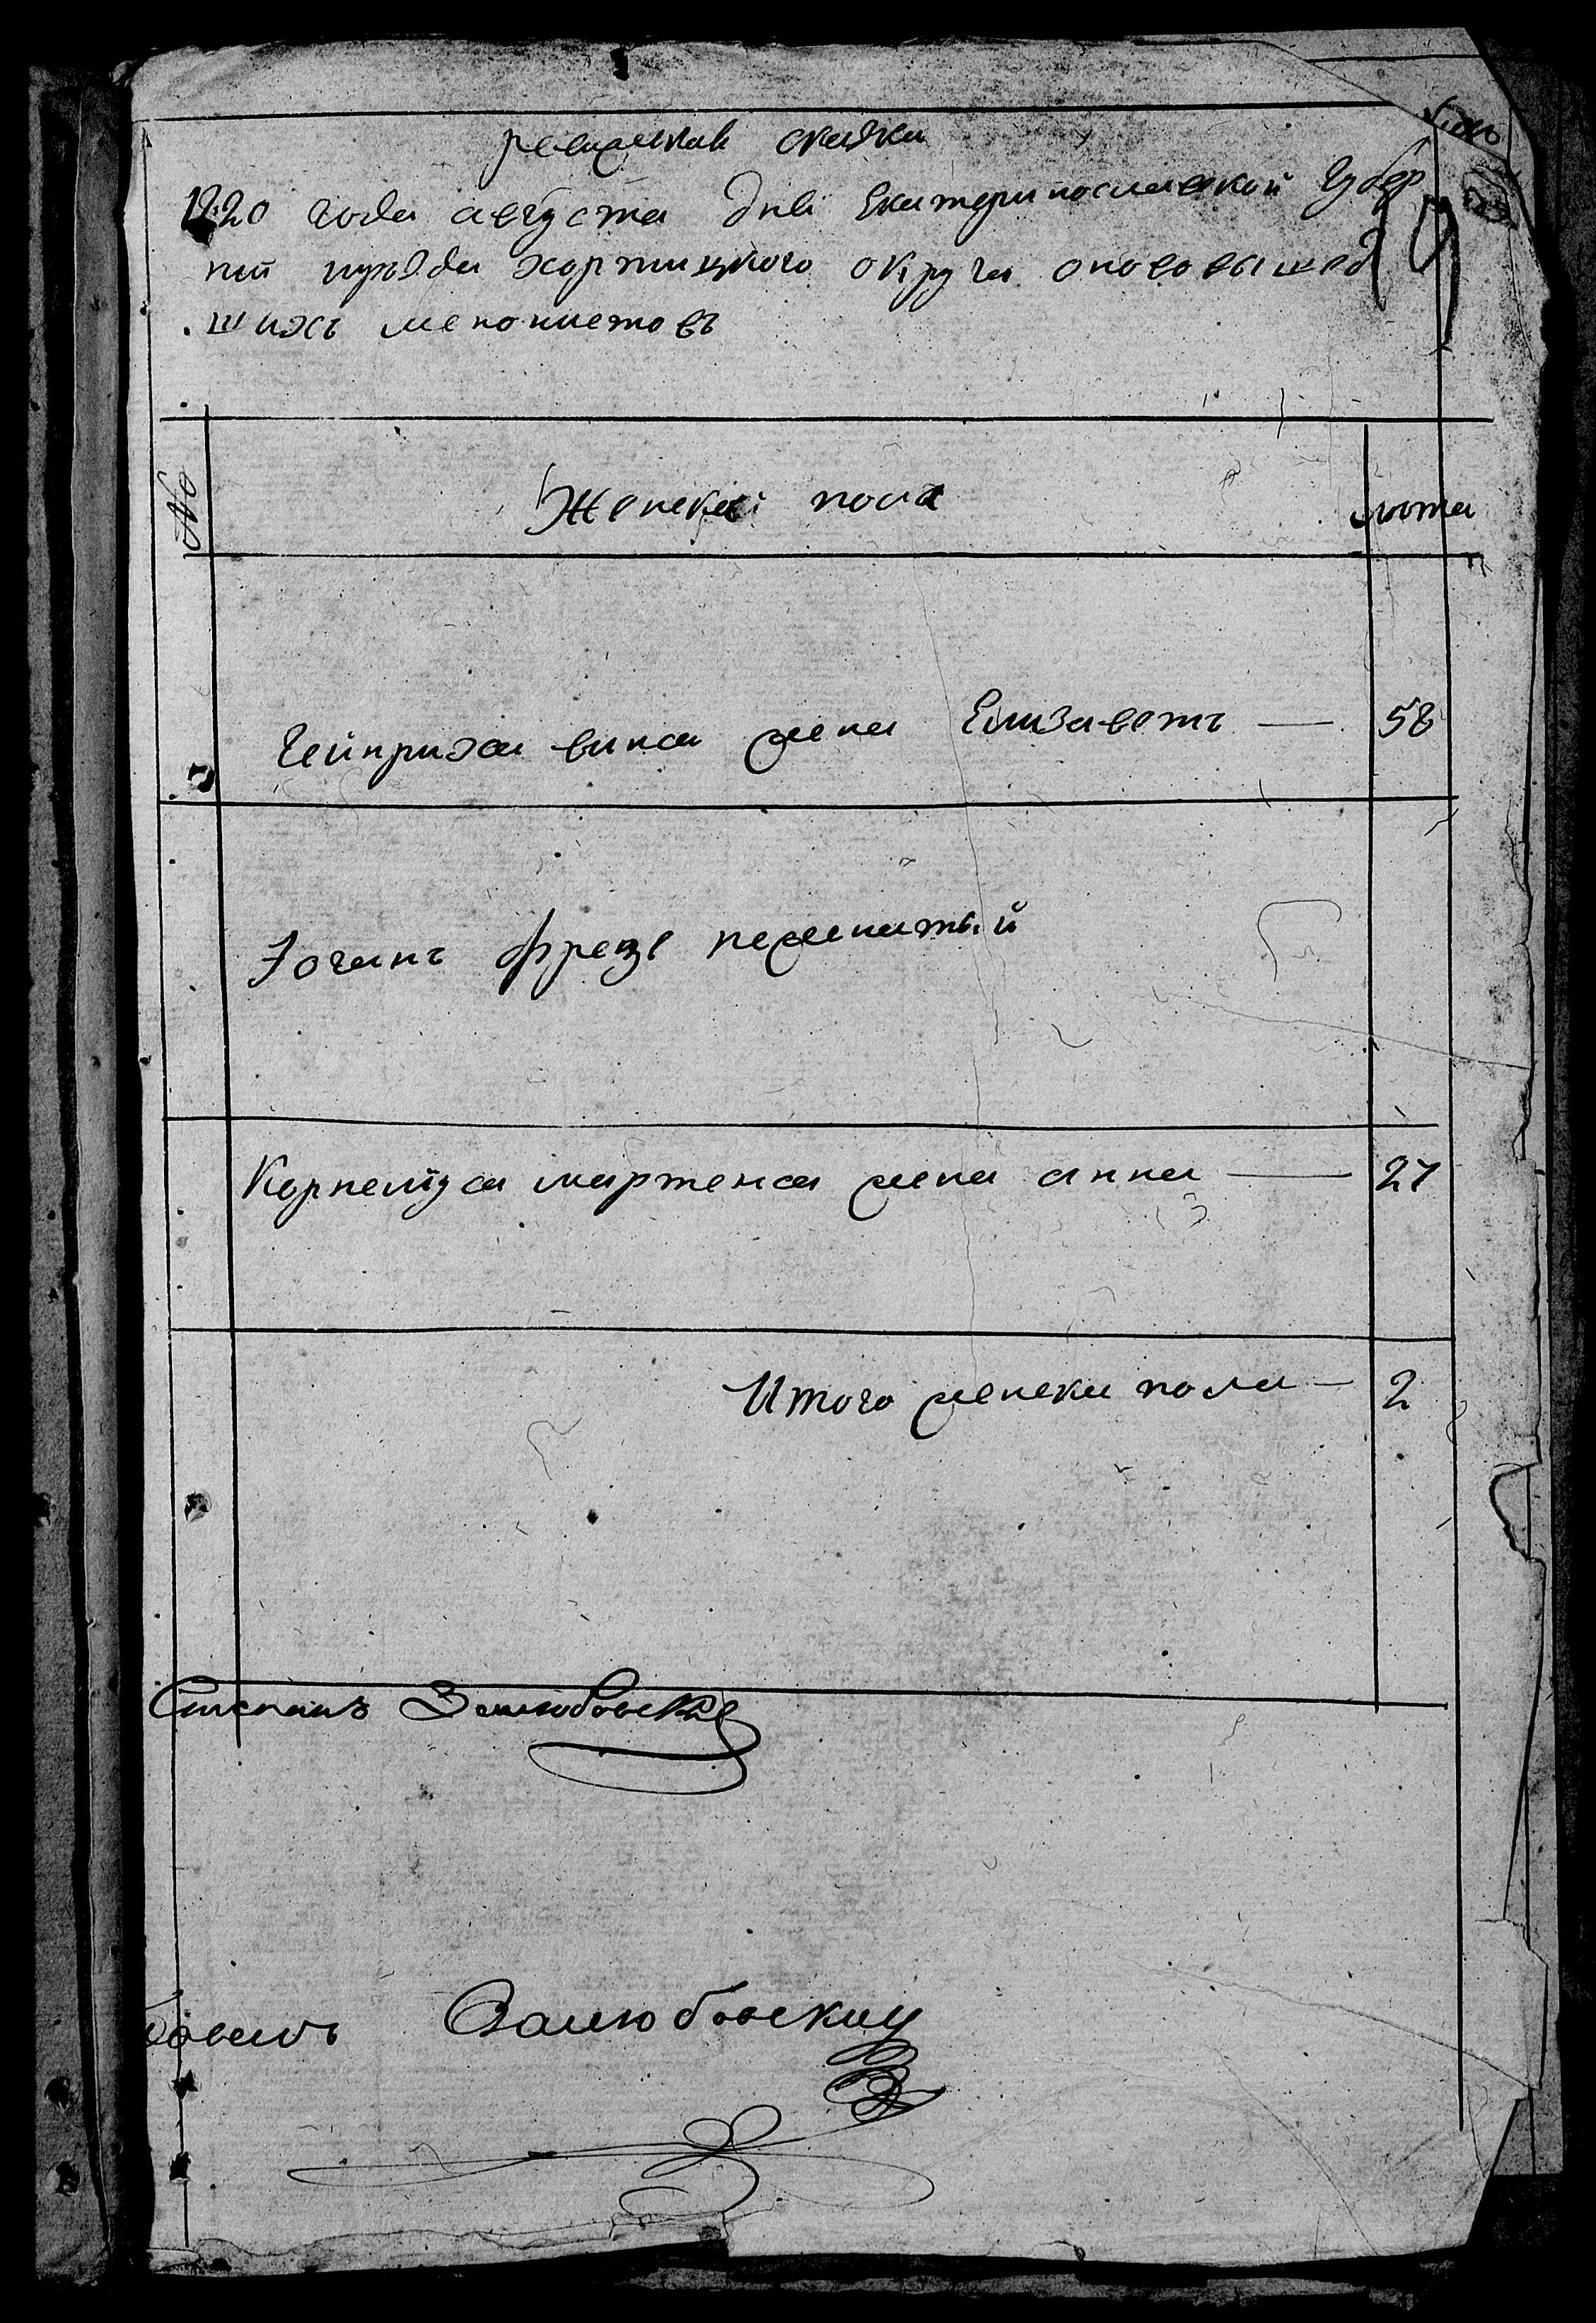 ревижская сказка
1820 года августа дня Екатеринославской Губер
нии уезда хортицкого округа оновов ышед
шихъ менонистовъ
№
Женска пола
лета
Гейнриха винса жена Елизаветъ — 58
Иоганъ Фрезе неженатый
Корнелиуса мартенса жена анна — 27
Итого женска пола — 2
Степанъ Залюбовский
Залюбовский